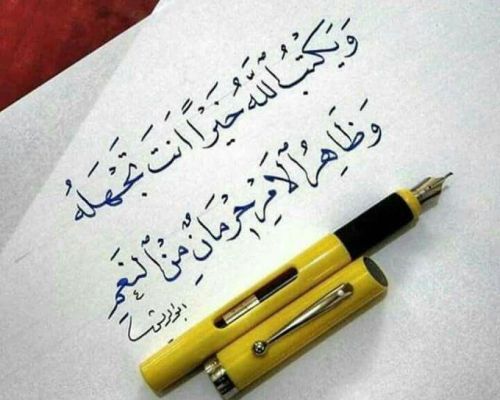 وَيَكْتُبُ ٱللَّهُ خَيْرًا أَنْتَ تَجْهَلُهُ
وَظَاهِرُ ٱلْأَمْرِ حِرْمَانٌ مِنَ ٱلنِّعَمِ